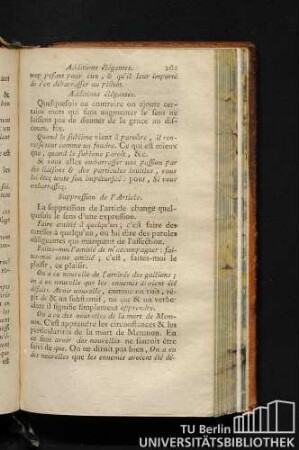 Additions élégantes. 281
trop pesant pour eux, & qu'il leur importe
de s'en débarrasser au plûtôt.
Additions élégantes.
Quelquefois au contraire on ajoute cer-
tains mots qui sans augmenter le sens ne
laissent pas de donner de la grace au dis-
cours. Ex.
Quand le sublime vient à paroître, il ren-
verse tout comme un foudre. Ce qui est mieux
que, quand le sublime paroît, &c.
Si vous allez embarrasser une passion par
des liaisons & des particules inutiles, vous
lui ôtez toute son impétuosité : pour, Si vous
embarrassez.
Suppression de l'Article.
La suppression de l'article change quel-
quefois le sens d'une expression.
Faire amitié à quelqu'un ; c'est faire des
caresses à quelqu'un, ou lui dire des paroles
obligeantes qui marquent de l'affection.
Faites-moi l'amitié de m'accompagner : fai-
tes-moi cette amitié ; c'est, faites-moi le
plaisir, ce plaisir.
On a eu nouvelle de l'arrivée des gallions ;
on a eu nouvelle que les ennemis avoient été
défaits. Avoir nouvelle, comme on voit, régit
de & un substantif, ou que & un verbe
dont il signifie simplement apprendre.
On a eu des nouvelles de la mort de Mem-
non. C'est apprendre les circonstances & les
particularités de la mort de Memnon. En
ce sens avoir des nouvelles ne sauroit être
suivi de que. On ne diroit pas bien, On a eu
des nouvelles que les ennemis avoient été dé-
TU Berlin
UNIVERSITÄTSBIBLIOTHEK